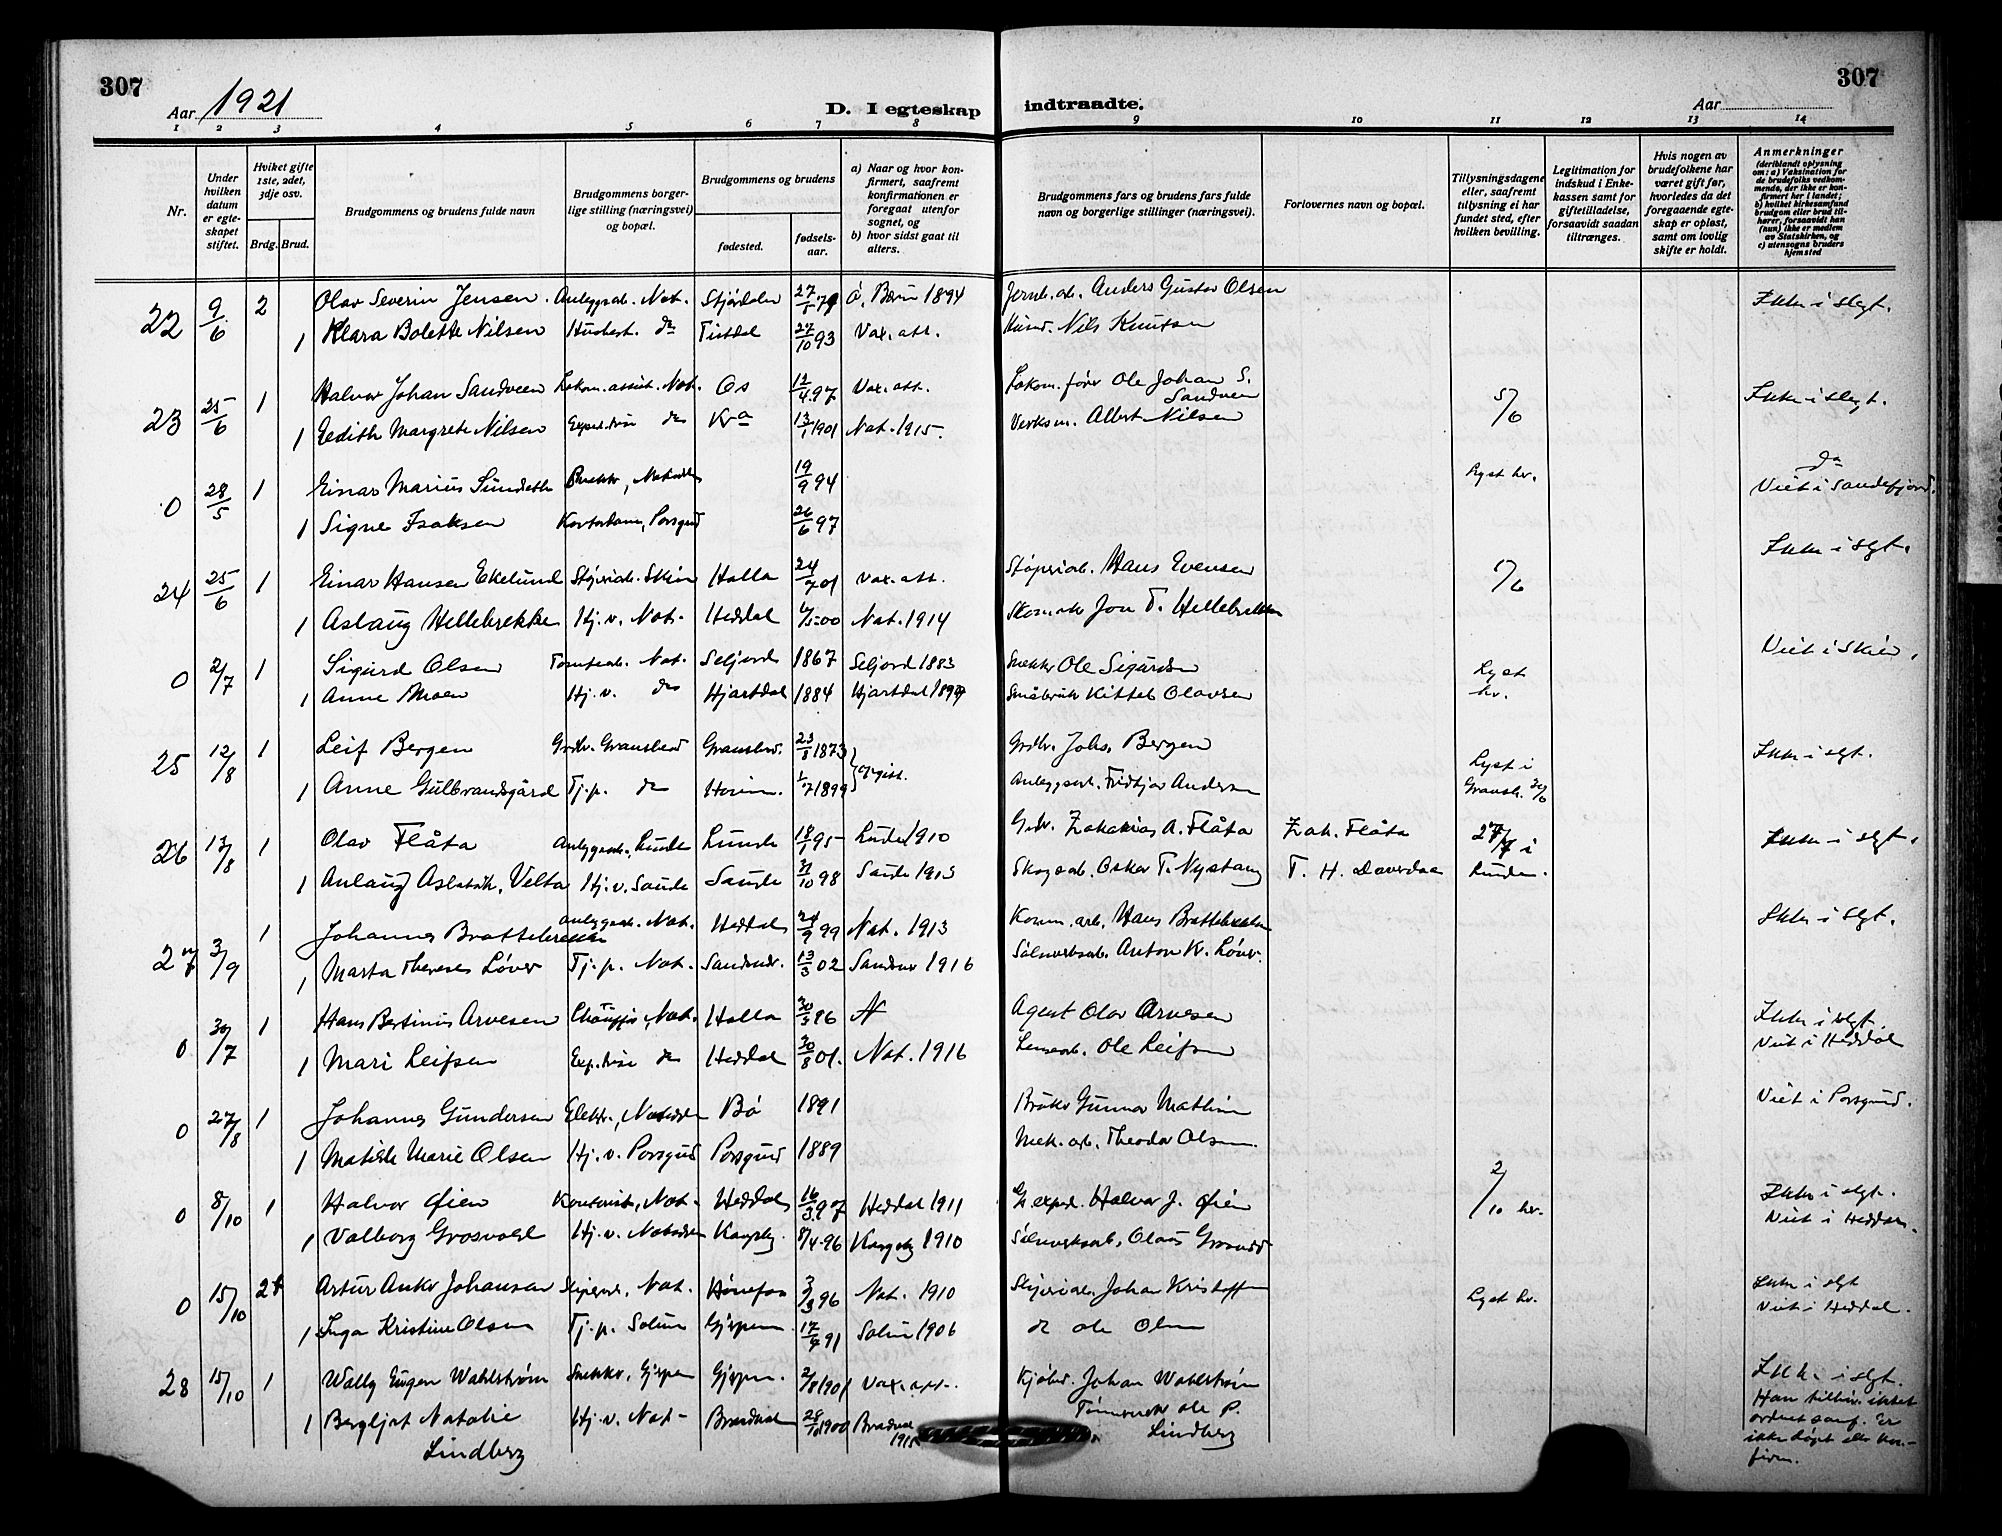 307
307
Aar 1921
D. I egteskap indtraadte.
Aar
1 2 3 4 5 6 7 8 9 10 11 12 13 14
Nr.
Under hvilken datum er egteskapet stiftet.
Hviket gifte 1ste, 2det, 3dje osv.
Brdg. Brud.
Brudgommens og brudens fulde navn
Brudgommens borgerlige stilling (næringsvei) og bopæl.
Brudgommens og brudens
fødested.
fødselsaar.
a) Naar og hvor konfirmert, saafremt konfirmationen er foregaat utenfor sognet, og
b) hvor sidst gaat til alters.
Brudgommens fars og brudens fars fulde navn og borgerlige stillinger (næringsvei).
Forlovernes navn og bopæl.
Tillysningsdagene eller, saafremt tillysning ei har fundet sted, efter hvilken bevilling.
Legitimation for indskud i Enkekassen samt for giftetilladelse, forsaavidt saadan tiltrænges.
Hvis nogen av brudefolkene har været gift før, hvorledes da det foregaaende egteskap er opløst, samt om lovlig skifte er holdt.
Anmerkninger (deriblandt oplysning om: a) Vaksination for de brudefolks vedkommende, der ikke er konfirmert her i landet; b) hvilket kirkesamfund brudgom eller brud tilhører, forsaavidt han (hun) ikke er medlem av Statskirken, og c) utensogns bruders hjemsted
22 9/6 2 Olav Severin Jensen Anlæggsarb. Not. Stjördalen 27/5 79 Ö. Bærum 1894 Jernb. arb. Anders Gustav Olsen Ikke i slegt.
1 Klara Bolette Nilsen Husbest. do 27/10 93 Vax. att. Husm. Nils Knutsen
23 25/6 1 Halvor Johan Sandveen Lokom. assist. Not. Os 12/4 97 Vax. att. Lokom. fører Ole Johan S. Sandveen 5/6 Ikke i slegt.
1 Eedith Margrete Nilsen do Kra 13/1 1901 Not. 1915. Verksm. Albert Nilsen
0 28/5 1 Einar Marius Sundseth Snekker, Notodden 19/9 94 Lyst hr. do Viet i Sandefjord.
1 Signe Isaksen Kontordame, Porsgrud 26/6 97
24 25/6 1 Einar Hansen Ekelund Støperiarb. Skien Holla 24/7 01 Vax. att. Støperiarb. Hans Evensen Ikke i slgt.
1 Aslaug Hellebrekke Hj. v. Not. Heddal 00 Not. 1914 Skomak Jon T. Hellebrekke
0 2/7 1 Sigurd Olsen Tomtearb. Not. Seljord 1867 Seljord 1883 Snekker Ole Sigurdsen Lyst hr. Viet i Skien.
1 Anne Moen Hj. v. do Hjartdal 1884 Hjartdal 1899 Småbruk Kittel Olavsen
25 12/8 1 Leif Bergen Grdbr. Gransherd Gransherd. 23/8 1873 Grdbr. Johs. Bergen Lyst i Gransh. Ikke i slgt.
1 Anne Gulbrandsgård Tj. p. do Hovin. 1/7 1899 Anlæggsarb. Fridtjov Andersen
26 13/8 1 Olav Flåta Anlæggsarb., Lunde Lunde 18/1 95 Lunde 1910 Grdbr. Zakarias A. Flåta Zak. Flåta 27/7 i Lunde. Ikke i slgt.
1 Anlaug Aslaksdt. Velta Hj. v. Saude Saude 98 Saude 1913 Skogsarb. Osker T. Nystaug T. H. Daverdal
27 3/9 1 Johannes Brattebrekke anlæggsarb. Not. Heddal 24/9 99 Not. 1913 Komm. arb. Hans Brattebrekke Ikke i slgt.
1 Marta Therese Løver Tj. p. Not. Sandsvær. 13/3 02 Sandsver 1916 Sølvverksarb. Anton Kr. Løver.
0 30/7 1 Hans Bertinius Arvesen Chauffør, Not. Holla 96 N Agent Olav Arvesen Ikke i slgt. Viet i Heddal
1 Mari Leifsen Exp. trise do Heddal 30/8 01. Not. 1916 Lensearb. Ole Leifsen
0 27/8 1 Johannes Gundersen Elektr., Notodden Bø 1891 Bruker Gunnar Mathisen Viet i Porsgrund.
1 Matilde Marie Olsen Hj. v. Porsgrud Porsgrund 1889 Mek. arb. Theodor Olsen.
0 8/10 1 Halvor Øien Kontorist, Not. Heddal 16/3 97 Heddal 1911 exped. Halvor J. Øien 2/10 hr. Ikke i slgt. Viet i Heddal.
1 Valborg Grosvold Hj. v. Notodden Kongsbg. 8/4 96 Kongsbg 1910 Sølvverksarb. Olaus Grosvold
0 15/10 2 Artur Anker Johansen Sliperiarb. Not. Hønefoss 3/3 96 Not. 1910 Sliperiarb. Johan Kristoffersen Lyst hr. Ikke i slgt Viet i Heddal.
1 Inga Kristine Olsen Tj. p. Solum Gjerpen 91 Solum 1906 do Ole Olsen
28 15/10 1 Wally Eugen Wahlstrøm Snekker, Gjerpen Gjerpen. 2/8 1901 Vax. att. Kjøbm. Johan Wahlstrøm Ikke i slgt. Han tilhør. intet ordnet samf. Er ikke døpt eller konfirm.
1 Bergljot Natalie Lindberg Hj. v. Not. 1900 1915 Tømmermk Ole P. Lindberg